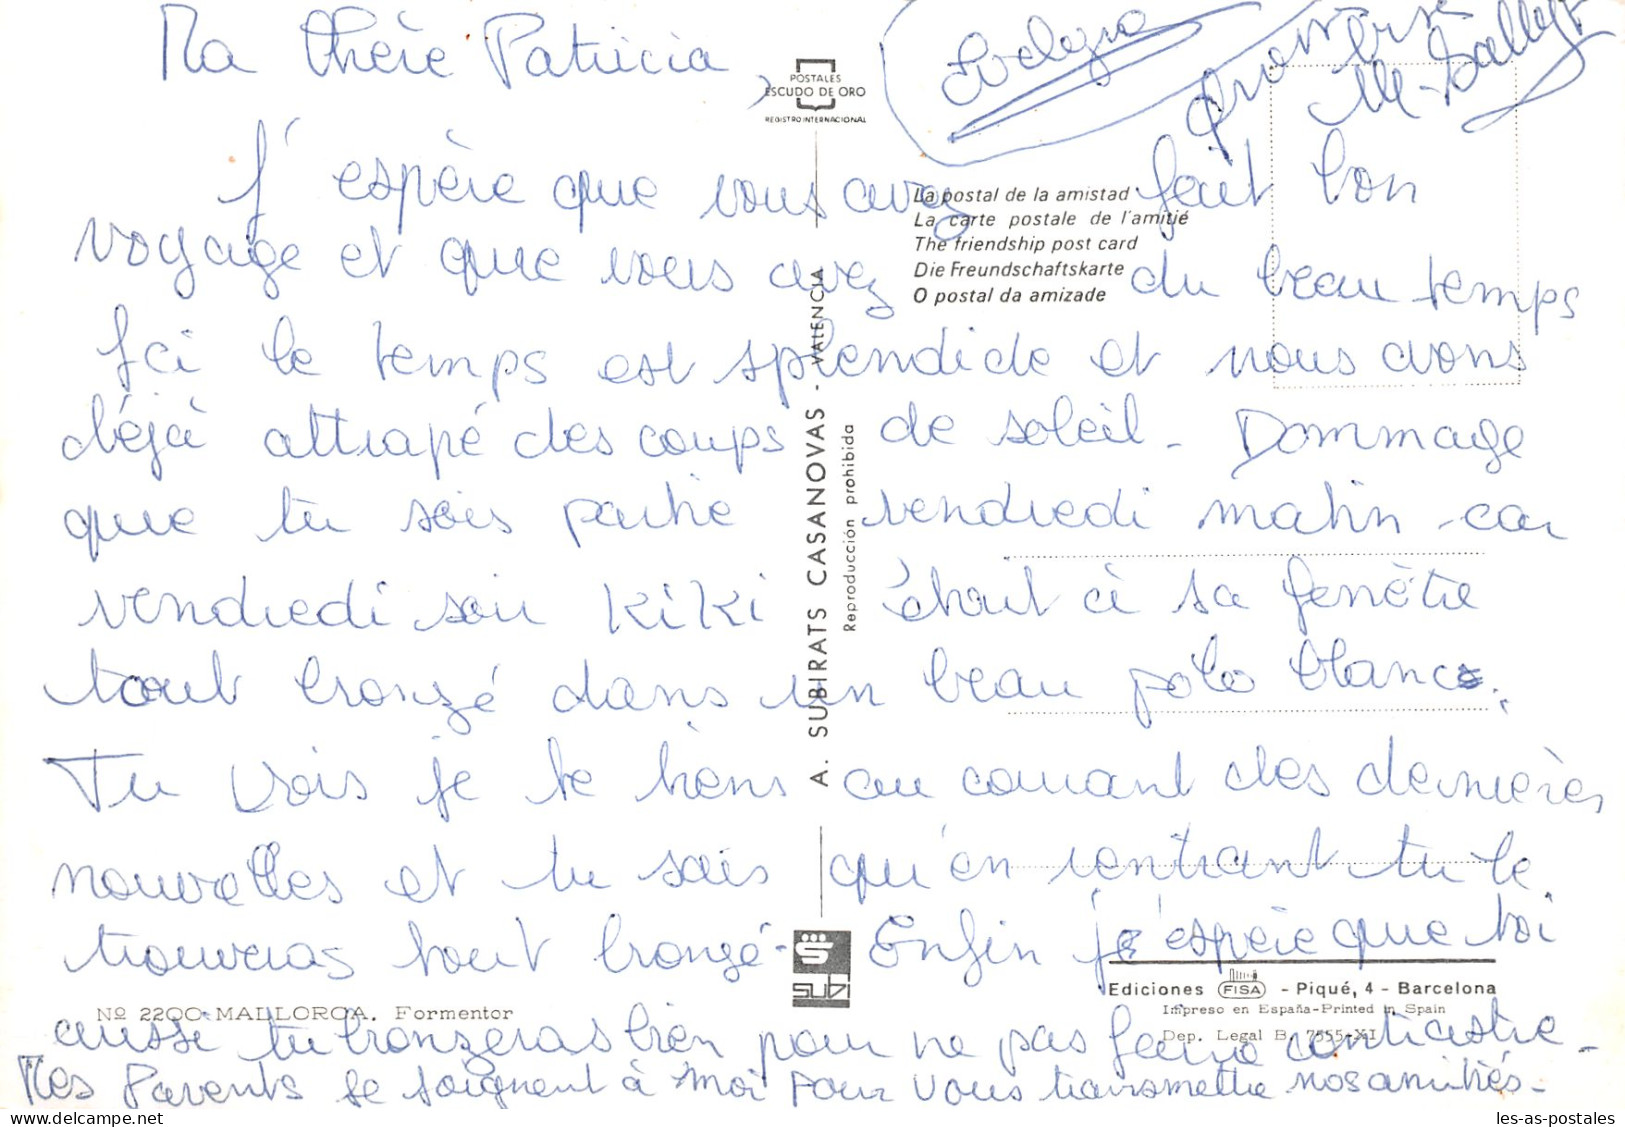 Ma Chère Patricia,
POSTALES
ESCUDO DE ORO
REGISTRO INTERNACIONAL
J'espère que vous avez fait bon
voyage et que vous avez du beau temps
Ici le temps est splendide et nous avons
déjà attrapé des coups de soleil - Dommage
que tu sois partie vendredi matin car
vendredi soir KiKi était à sa fenêtre
tout bronzé dans un beau polo blanc.
Tu vois je te tiens au courant des dernières
nouvelles et tu sais qu'en rentrant tu le
trouveras tout bronzé - Enfin j'espère que toi
aussi tu bronzeras bien pour ne pas faire contraste -
Mes Parents se joignent à moi pour vous transmettre nos amitiés -
La postal de la amistad
La carte postale de l'amitié
The friendship post card
Die Freundschaftskarte
O postal da amizade
A. SUBIRATS CASANOVAS - VALENCIA
Reproducción prohibida
SUBI
Nº 2200 MALLORCA. Formentor
Ediciones FISA - Piqué, 4 - Barcelona
Impreso en España-Printed in Spain
Dep. Legal B. 7555-XI
les-as-postales